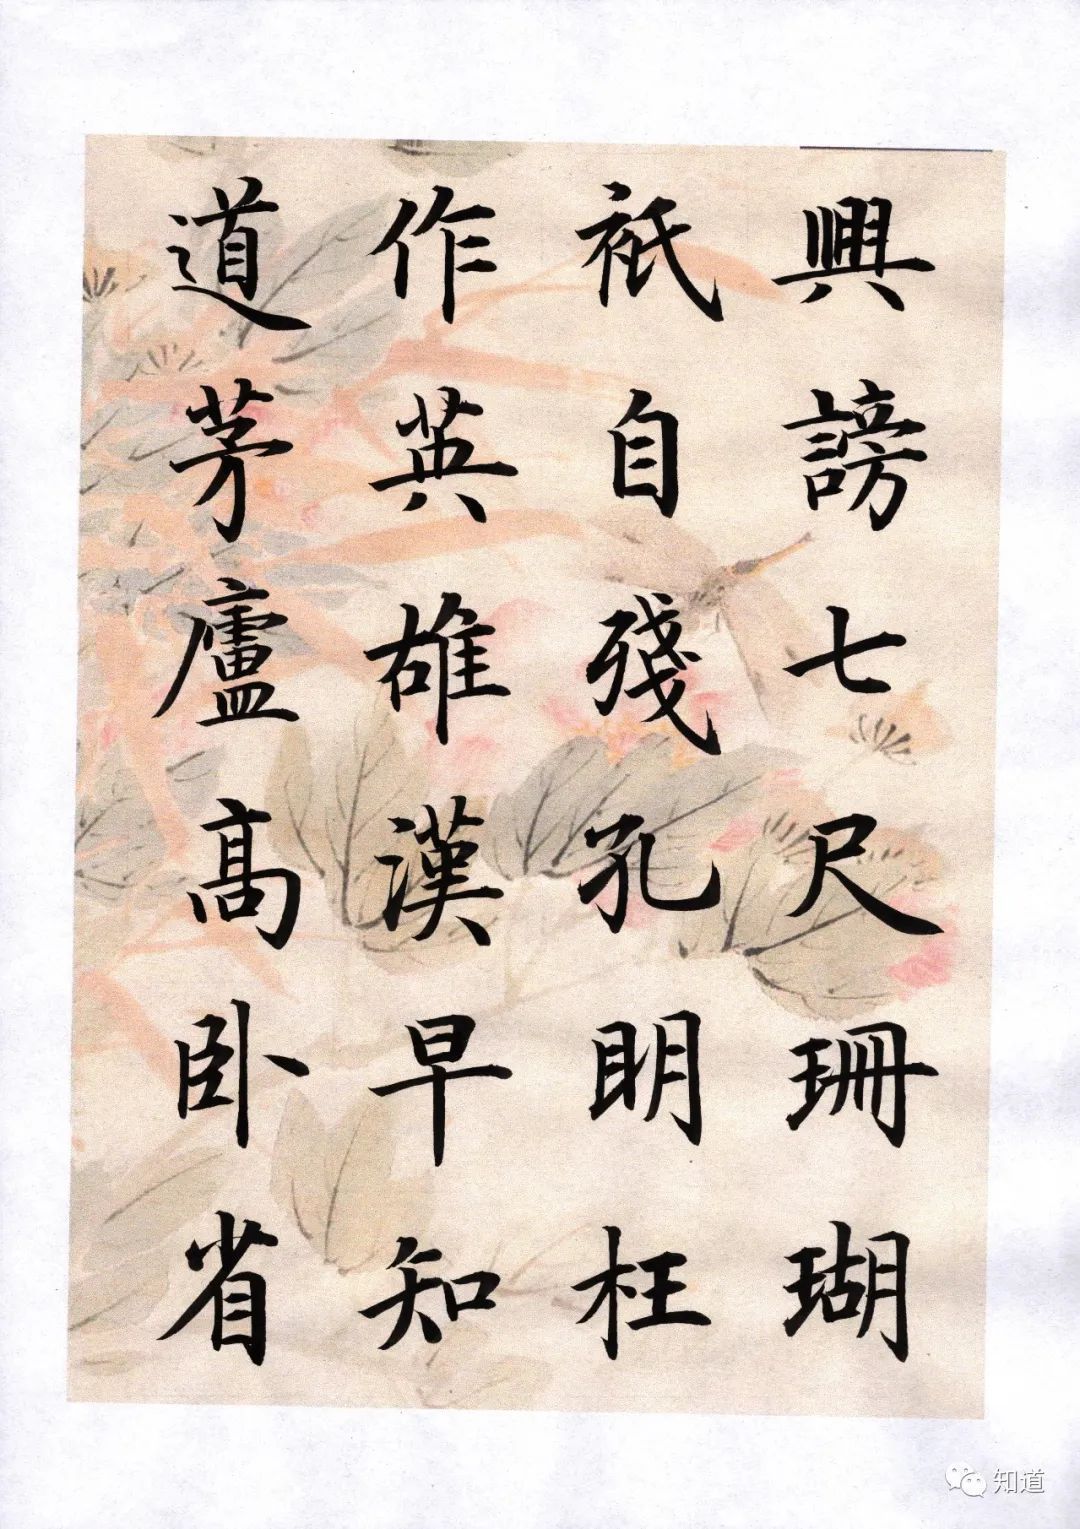 興謗七尺珊瑚
祇自殘孔明枉
作英雄漢早知
道茅廬高卧省
知道